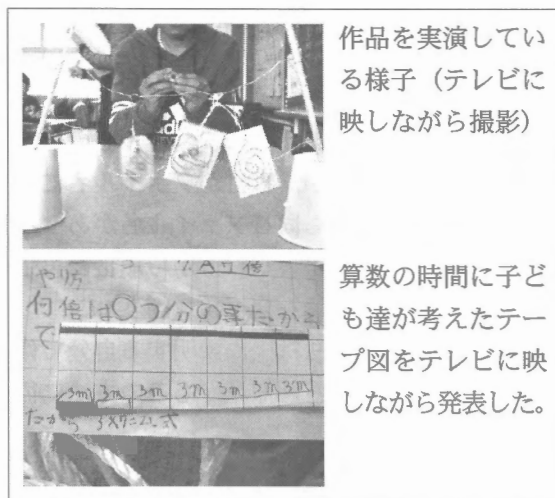 作品を実演してい
る様子（テレビに
映しながら撮影）
やり方
何倍は〇つ分の事だから
で
3m 3m 3m 3m 3m 3m 3m
だから 3×7=21 式
算数の時間に子ど
も達が考えたテー
プ図をテレビに映
しながら発表した。